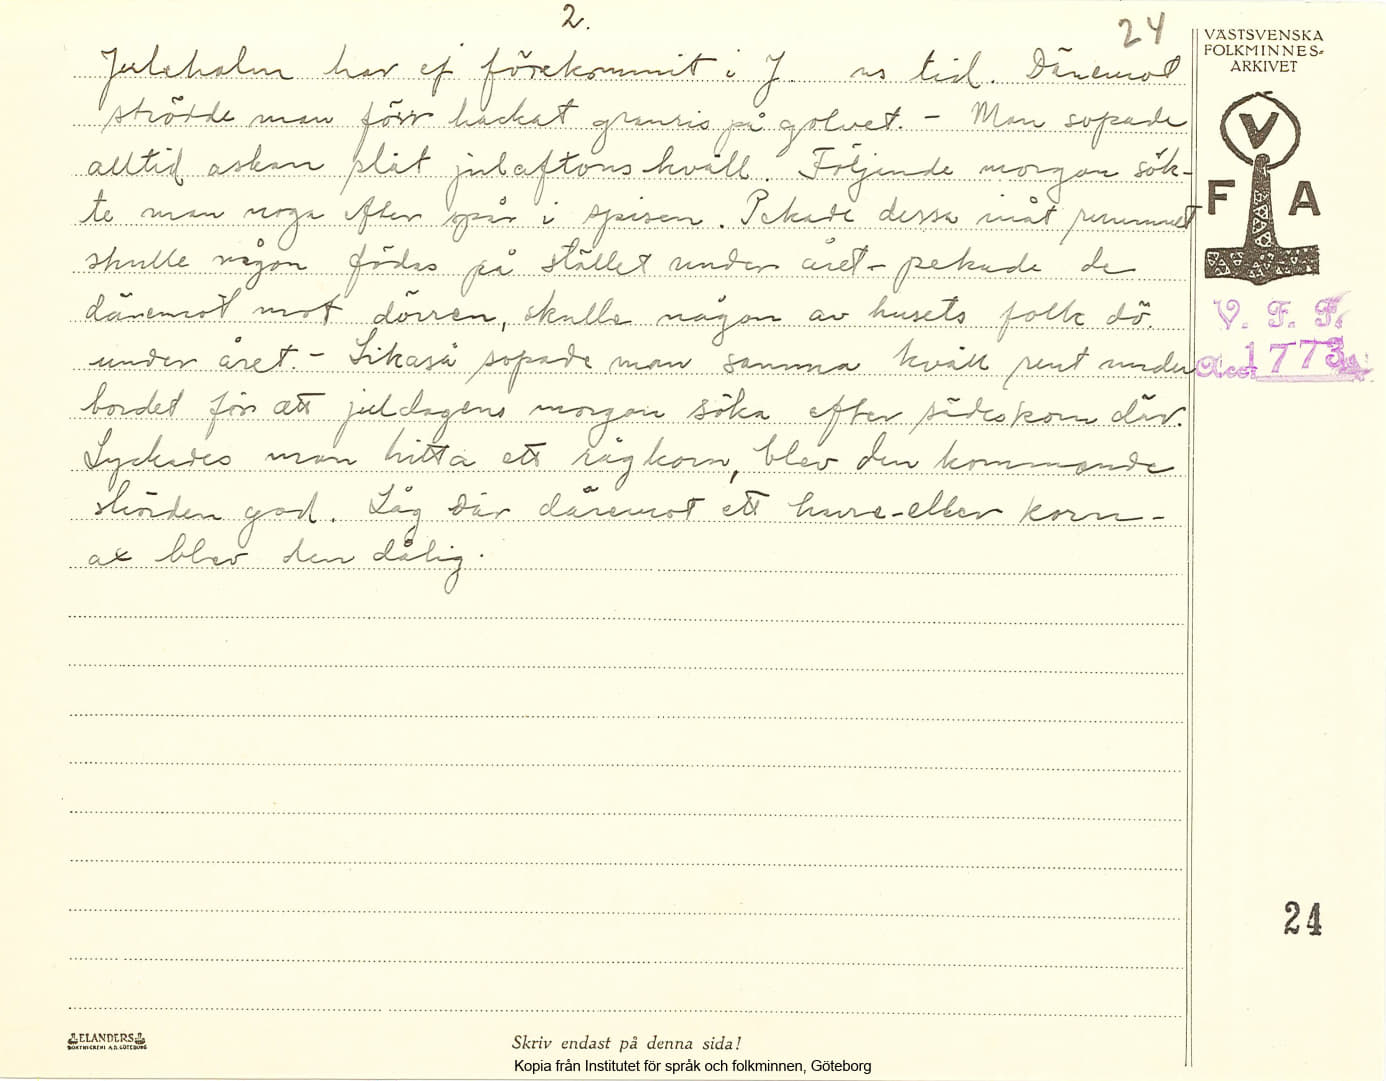 2.
24
VÄSTSVENSKA
FOLKMINNES-
ARKIVET
Julehalm har ej förekommit i J ns tid. Däremot
strödde man förr hackat granris på golvet. - Man sopade
alltid askan slät julaftons kväll. Följande morgon sök-
te man noga efter spår i spisen. Pekade dessa inåt rummet
skulle någon födas på stället under året - pekade de
däremot mot dörren, skulle någon av husets folk dö
under året. - Likaså sopade man samma kväll rent under
bordet för att juldagens morgon söka efter sädeskorn där.
Lyckades man hitta ett rågkorn, blev den kommande
skörden god. Låg där däremot ett havre- eller korn-
ax blev den dålig.
V
F A
V. F. F.
Acc. 1773
24
ELANDERS
BOKTRYCKERI A.B. GÖTEBORG
Skriv endast på denna sida!
Kopia från Institutet för språk och folkminnen, Göteborg